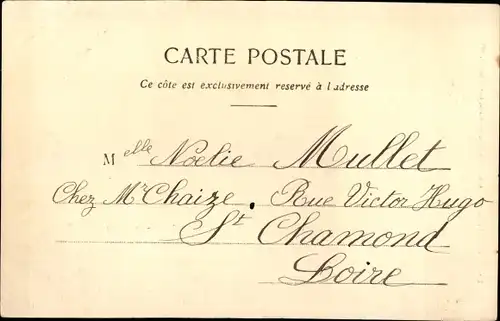 CARTE POSTALE
Ce côte est exclusivement reservé à l'adresse
Melle Noelie Mullet
Chez Mr Chaize. Rue Victor Hugo
St Chamond
Loire